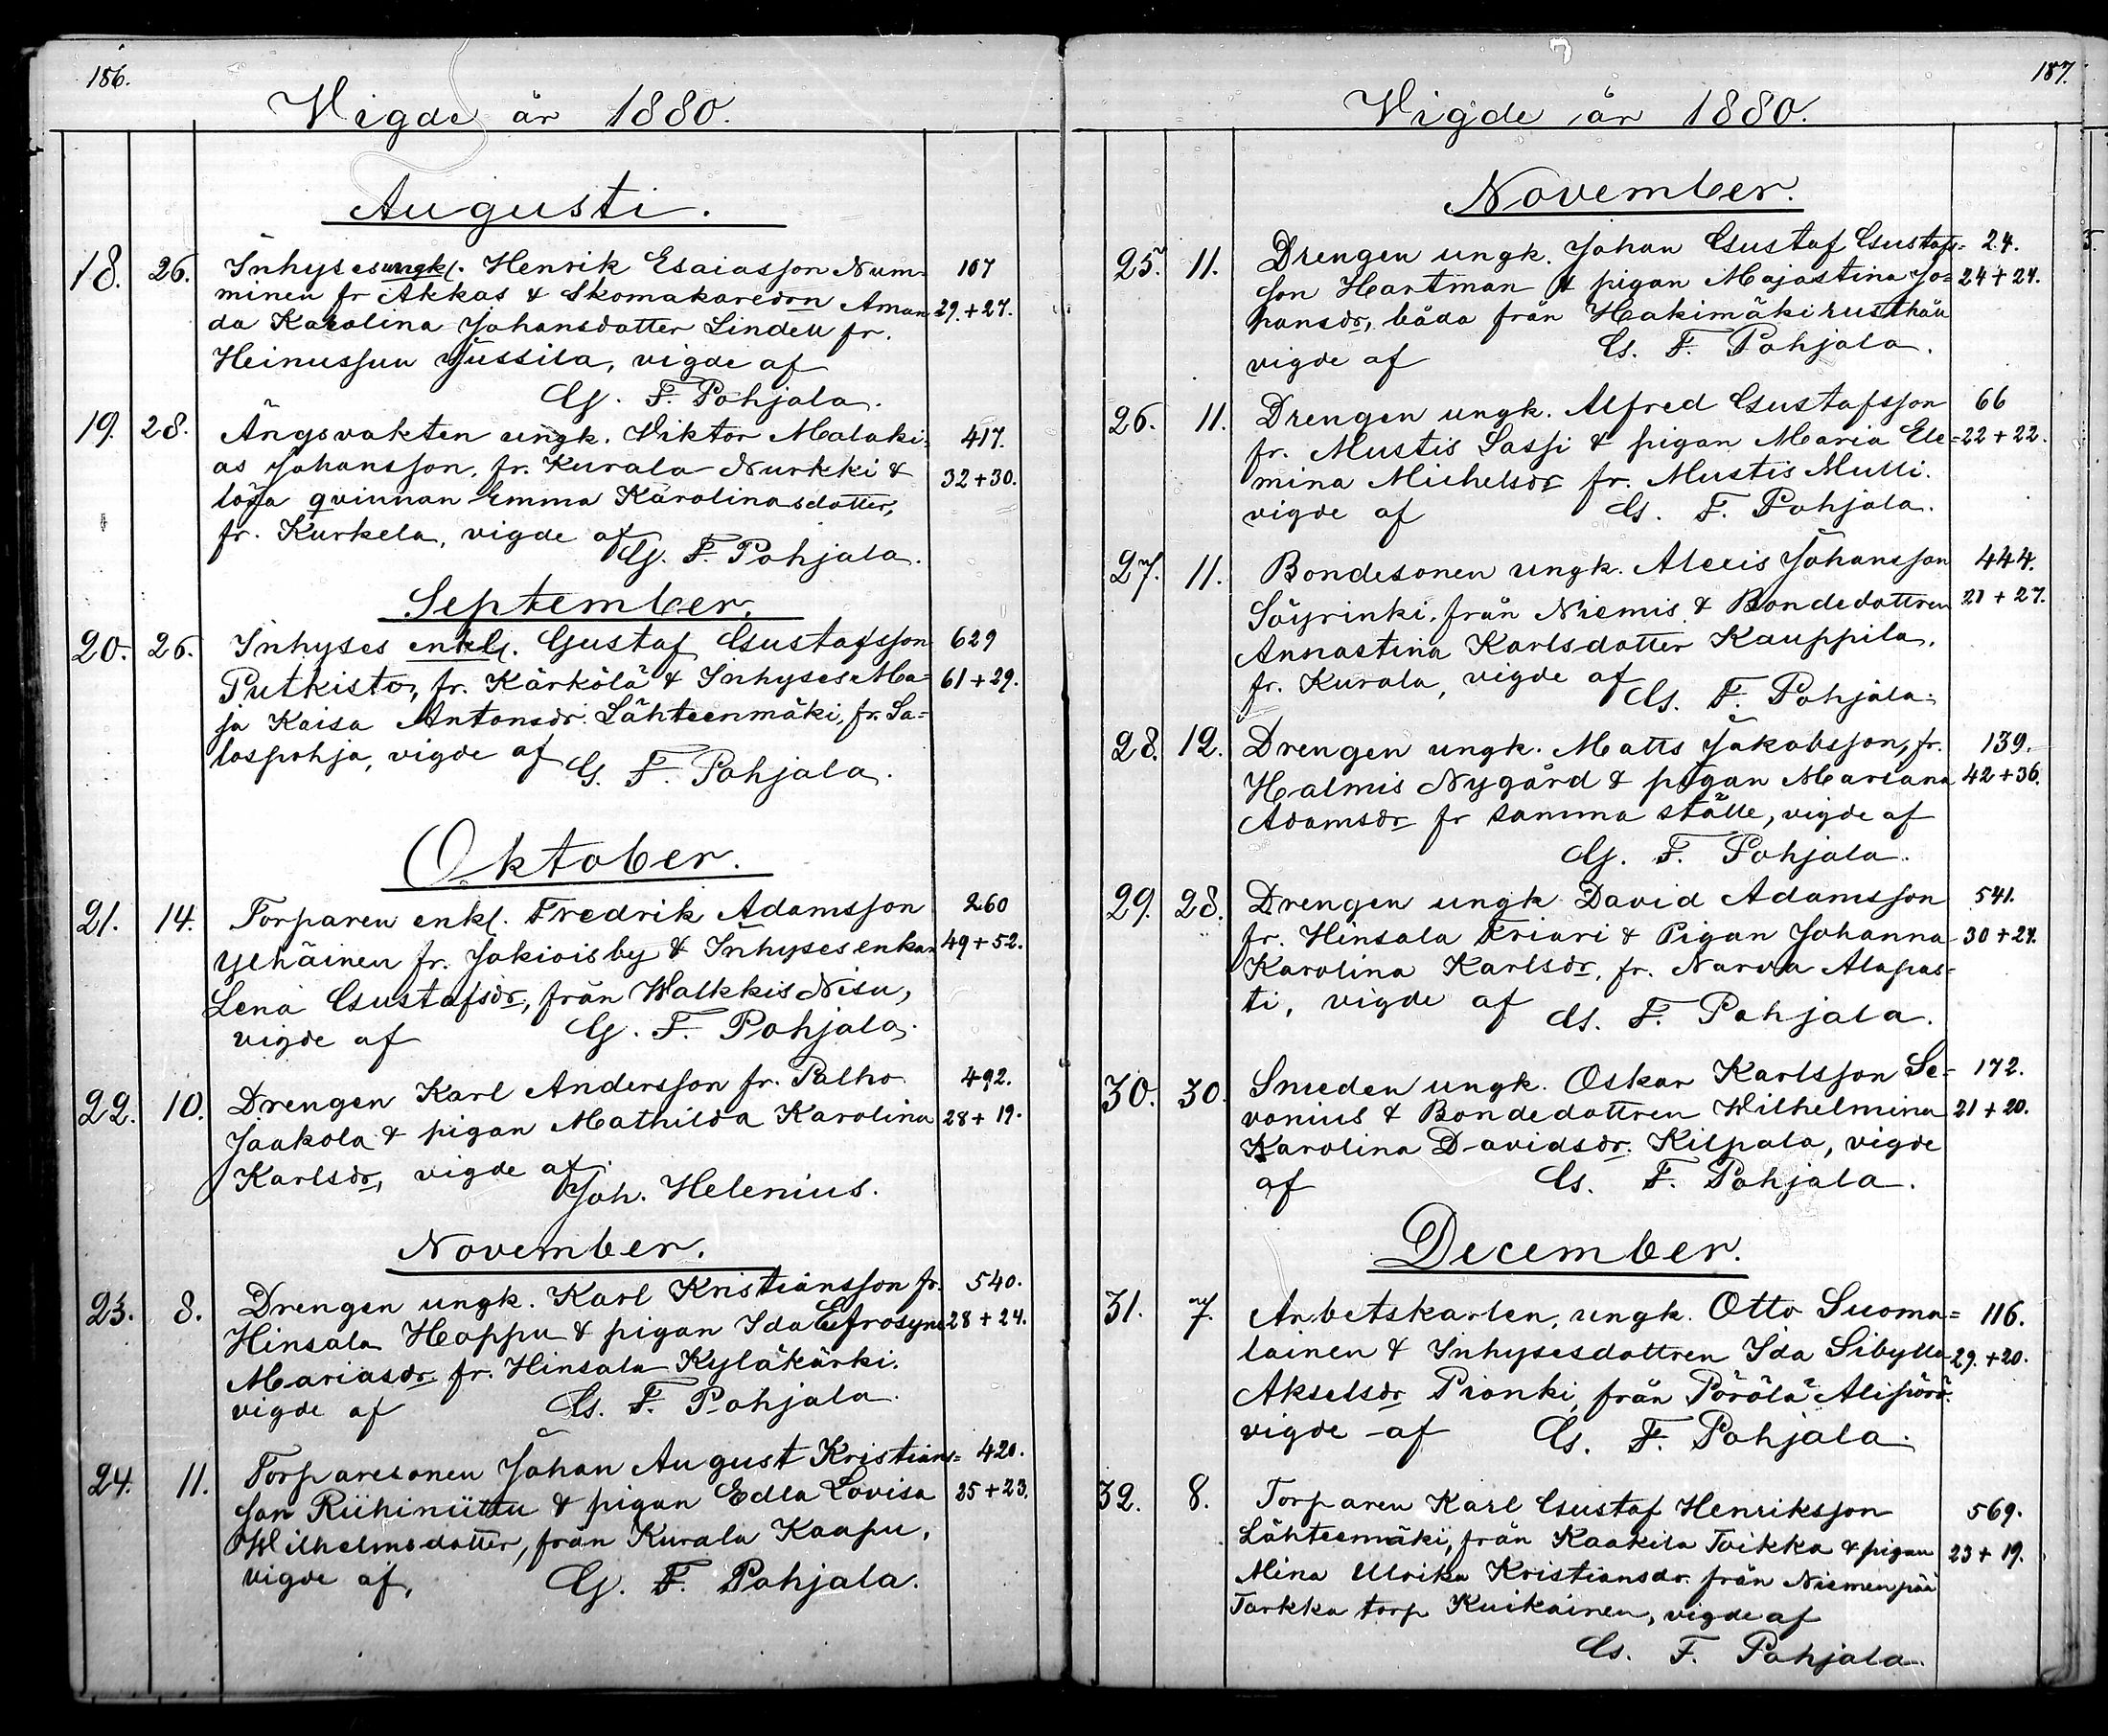 186.
Vigde år 1880.
Augusti.
18. 26. Inhyses ungk. Henrik Esaiasson Num= 107
minen fr Akkas & Skomakaredrn Aman 29.+27.
da Karolina Johansdotter Linden fr.
Heinusuu Jussila, vigde af
G. F. Pohjala.
19. 28. Ängsvakten ungk. Viktor Malaki= 417.
as Johansson, fr. Kurala Nurkki & 32+30.
lösa qvinnan Emma Karolinasdotter,
fr. Kurkela, vigde af
G. F. Pohjala.
September.
20. 26. Inhyses enkl. Gustaf Gustafsson 629
Putkisto, fr. Kärkölä & Inhyses Ma= 61+29.
ja Kaisa Antonsdr. Lähteenmäki, fr. Sa=
lospohja, vigde af G. F. Pohjala.
Oktober.
21. 14. Torparen enkl. Fredrik Adamsson 260
Ylhäinen fr. Jokiois by & Inhyses enkan 49+52.
Lena Gustafsdr, från Walkkis Nisu,
vigde af G. F. Pohjala.
22. 10. Drengen Karl Andersson fr. Palho 492.
Jaakola & pigan Mathilda Karolina 28+19.
Karlsdr, vigde af
Joh. Helenius.
November.
23. 8. Drengen ungk. Karl Kristiansson fr. 540.
Hinsala Hoppu & pigan Ida Eufrosyne 28+24.
Mariasdr fr. Hinsala Kyläkärki.
vigde af G. F. Pohjala
24. 11. Torparesonen Johan August Kristians= 420.
son Riihiniittu & pigan Edla Lovisa 25+23.
Wilhelmsdotter, från Kurala Kaapu,
vigde af, G. F. Pohjala.
187.
Vigde år 1880.
November.
25. 11. Drengen ungk. Johan Gustaf Gustafs= 24.
son Hartman & pigan Majastina Jo= 24+24.
hansdr, båda från Hakimäki rusthåll
vigde af G. F. Pohjala.
26. 11. Drengen ungk. Alfred Gustafsson 66
fr. Mustis Sassi & pigan Maria Ele= 22+22.
mina Michelsdr fr. Mustis Mulli.
vigde af G. F. Pohjala.
27. 11. Bondesonen ungk. Alexis Johansson 444.
Söyrinki, från Niemis & Bondedottren 21+27.
Annastina Karlsdotter Kauppila,
fr. Kurala, vigde af G. F. Pohjala.
28. 12. Drengen ungk. Matts Jakobsson, fr. 139.
Halmis Nygård & pigan Mariana 42+36.
Adamsdr fr samma ställe, vigde af
G. F. Pohjala.
29. 28. Drengen ungk David Adamsson 541.
fr. Hinsala Friari & Pigan Johanna 30+24.
Karolina Karlsdr, fr. Narva Alapas=
ti, vigde af G. F. Pohjala.
30. 30. Smeden ungk. Oskar Karlsson Se= 172.
vonius & Bondedottren Wilhelmina 21+20.
Karolina Davidsdr. Kilpala, vigde
af G. F. Pohjala.
December.
31. 7. Arbetskarlen, ungk. Otto Suoma= 116.
lainen & Inhysesdottren Ida Sibylla 29.+20.
Akselsdr Pionki, från Pörölä Alipörö.
vigde af G. F. Pohjala.
32. 8. Torparen Karl Gustaf Henriksson 569.
Lähteenmäki, från Kaakila Toikka & pigan 23+19.
Mina Ulrika Kristiansdr. från Niemenpää
Torkko torp Kuikainen, vigde af
G. F. Pohjala.